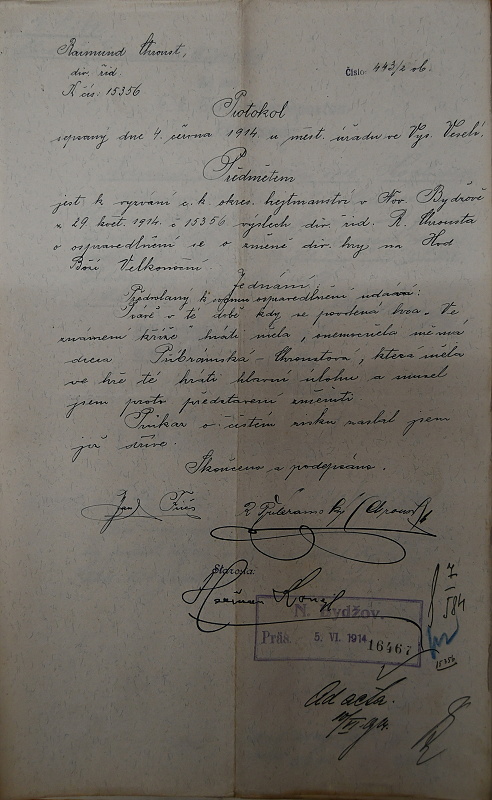 Raimund Chroust,
div. řid.
K čís. 15356
Číslo 443/2 ob.
Protokol
sepsaný dne 4. června 1914 u měst. úřadu ve Vys. Veselí.
Předmětem
jest k vyzvání c. k. okres. hejtmanství v Nov. Bydžově
z 29 květ. 1914. č 15356 výslech div. řid. R. Chrousta
o ospravedlnění se o změně div. hry na Hod
Boží Velkonoční.
Jednání:
Předvolaný k ospravedlnění udává:
Právě v té době kdy se povolená hra „Ve
znamení kříže" hráti měla, onemocněla má
dcera Přibramská-Chroustová, která měla
ve hře té hráti hlavní úlohu a musel
jsem proto představení změniti.
Průkaz o čistém zisku zaslal jsem
již dříve.
Skončeno a podepsáno.
Jan
R Přibramský (Chroust)
Starosta:
N. Bydžov.
Präs. 5. VI. 1914
16467
7
584
15356
Ad acta.